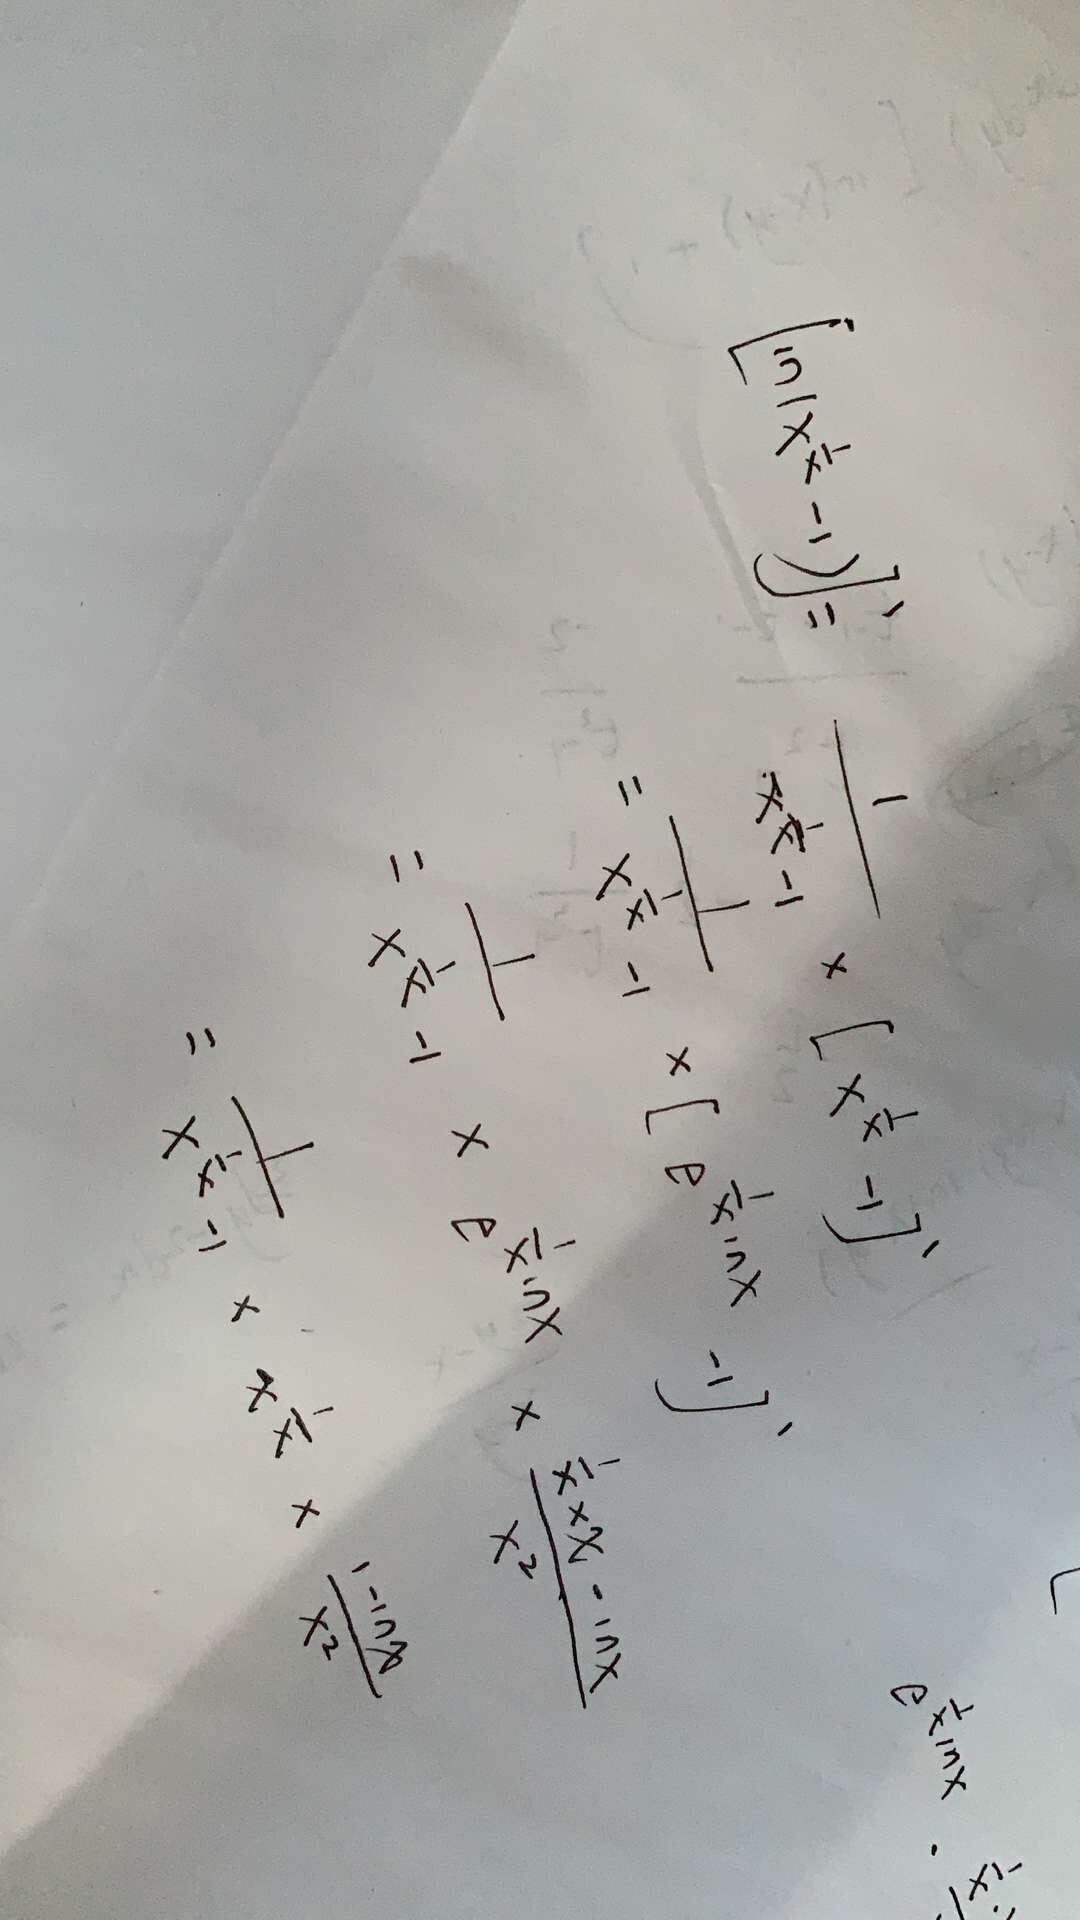 [ln(x^{\frac{1}{x}} - 1)]' = \frac{1}{x^{\frac{1}{x}} - 1} × [x^{\frac{1}{x}} - 1]'
= \frac{1}{x^{\frac{1}{x}} - 1} × [e^{\frac{1}{x} ln x} - 1]'
= \frac{1}{x^{\frac{1}{x}} - 1} × e^{\frac{1}{x} ln x} × \frac{\frac{1}{x} × x - ln x}{x^2}
= \frac{1}{x^{\frac{1}{x}} - 1} × x^{\frac{1}{x}} × \frac{1 - ln x}{x^2}
e^{\frac{1}{x} ln x} ·